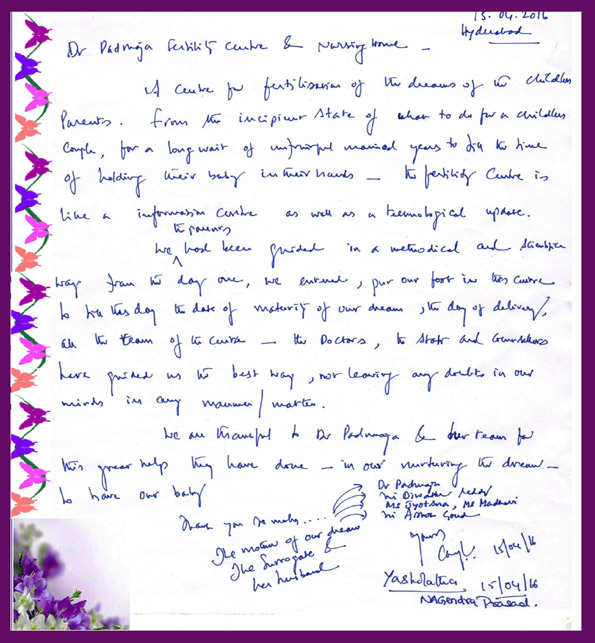 15.04.2016
Hyderabad
Dr Padmaja Fertility Centre & Nursing Home –
A Centre for fertilisation of the dreams of the childless
Parents. From the incipient state of what to do for a childless
Couple, for a long wait of unfruitful married years to till the time
of holding their baby in their hands – the fertility Centre is
like a information centre as well as a technological update.
the parents
We had been guided in a methodical and scientific
way from the day one, we entered, put our foot in this centre
to till this day the date of maturity of our dream, the day of delivery,
all the team of the Centre – the Doctors, the Staff and Counsellors
have guided us the best way, not leaving any doubts in our
minds in any manner/matter.
We are thankful to Dr Padmaja & her team for
this great help they have done – in our nurturing the dream –
to have our baby
Dr Padmaja
Mr Diwakar Reddy
Ms Jyotsna, Ms Madhavi
Mr Ashok Goud
Thank you So much....
The mother of our dream
The Surrogate &
her husband
Yours
15/04/16
Yasholatha 15/04/16
NAGendra Prasad.